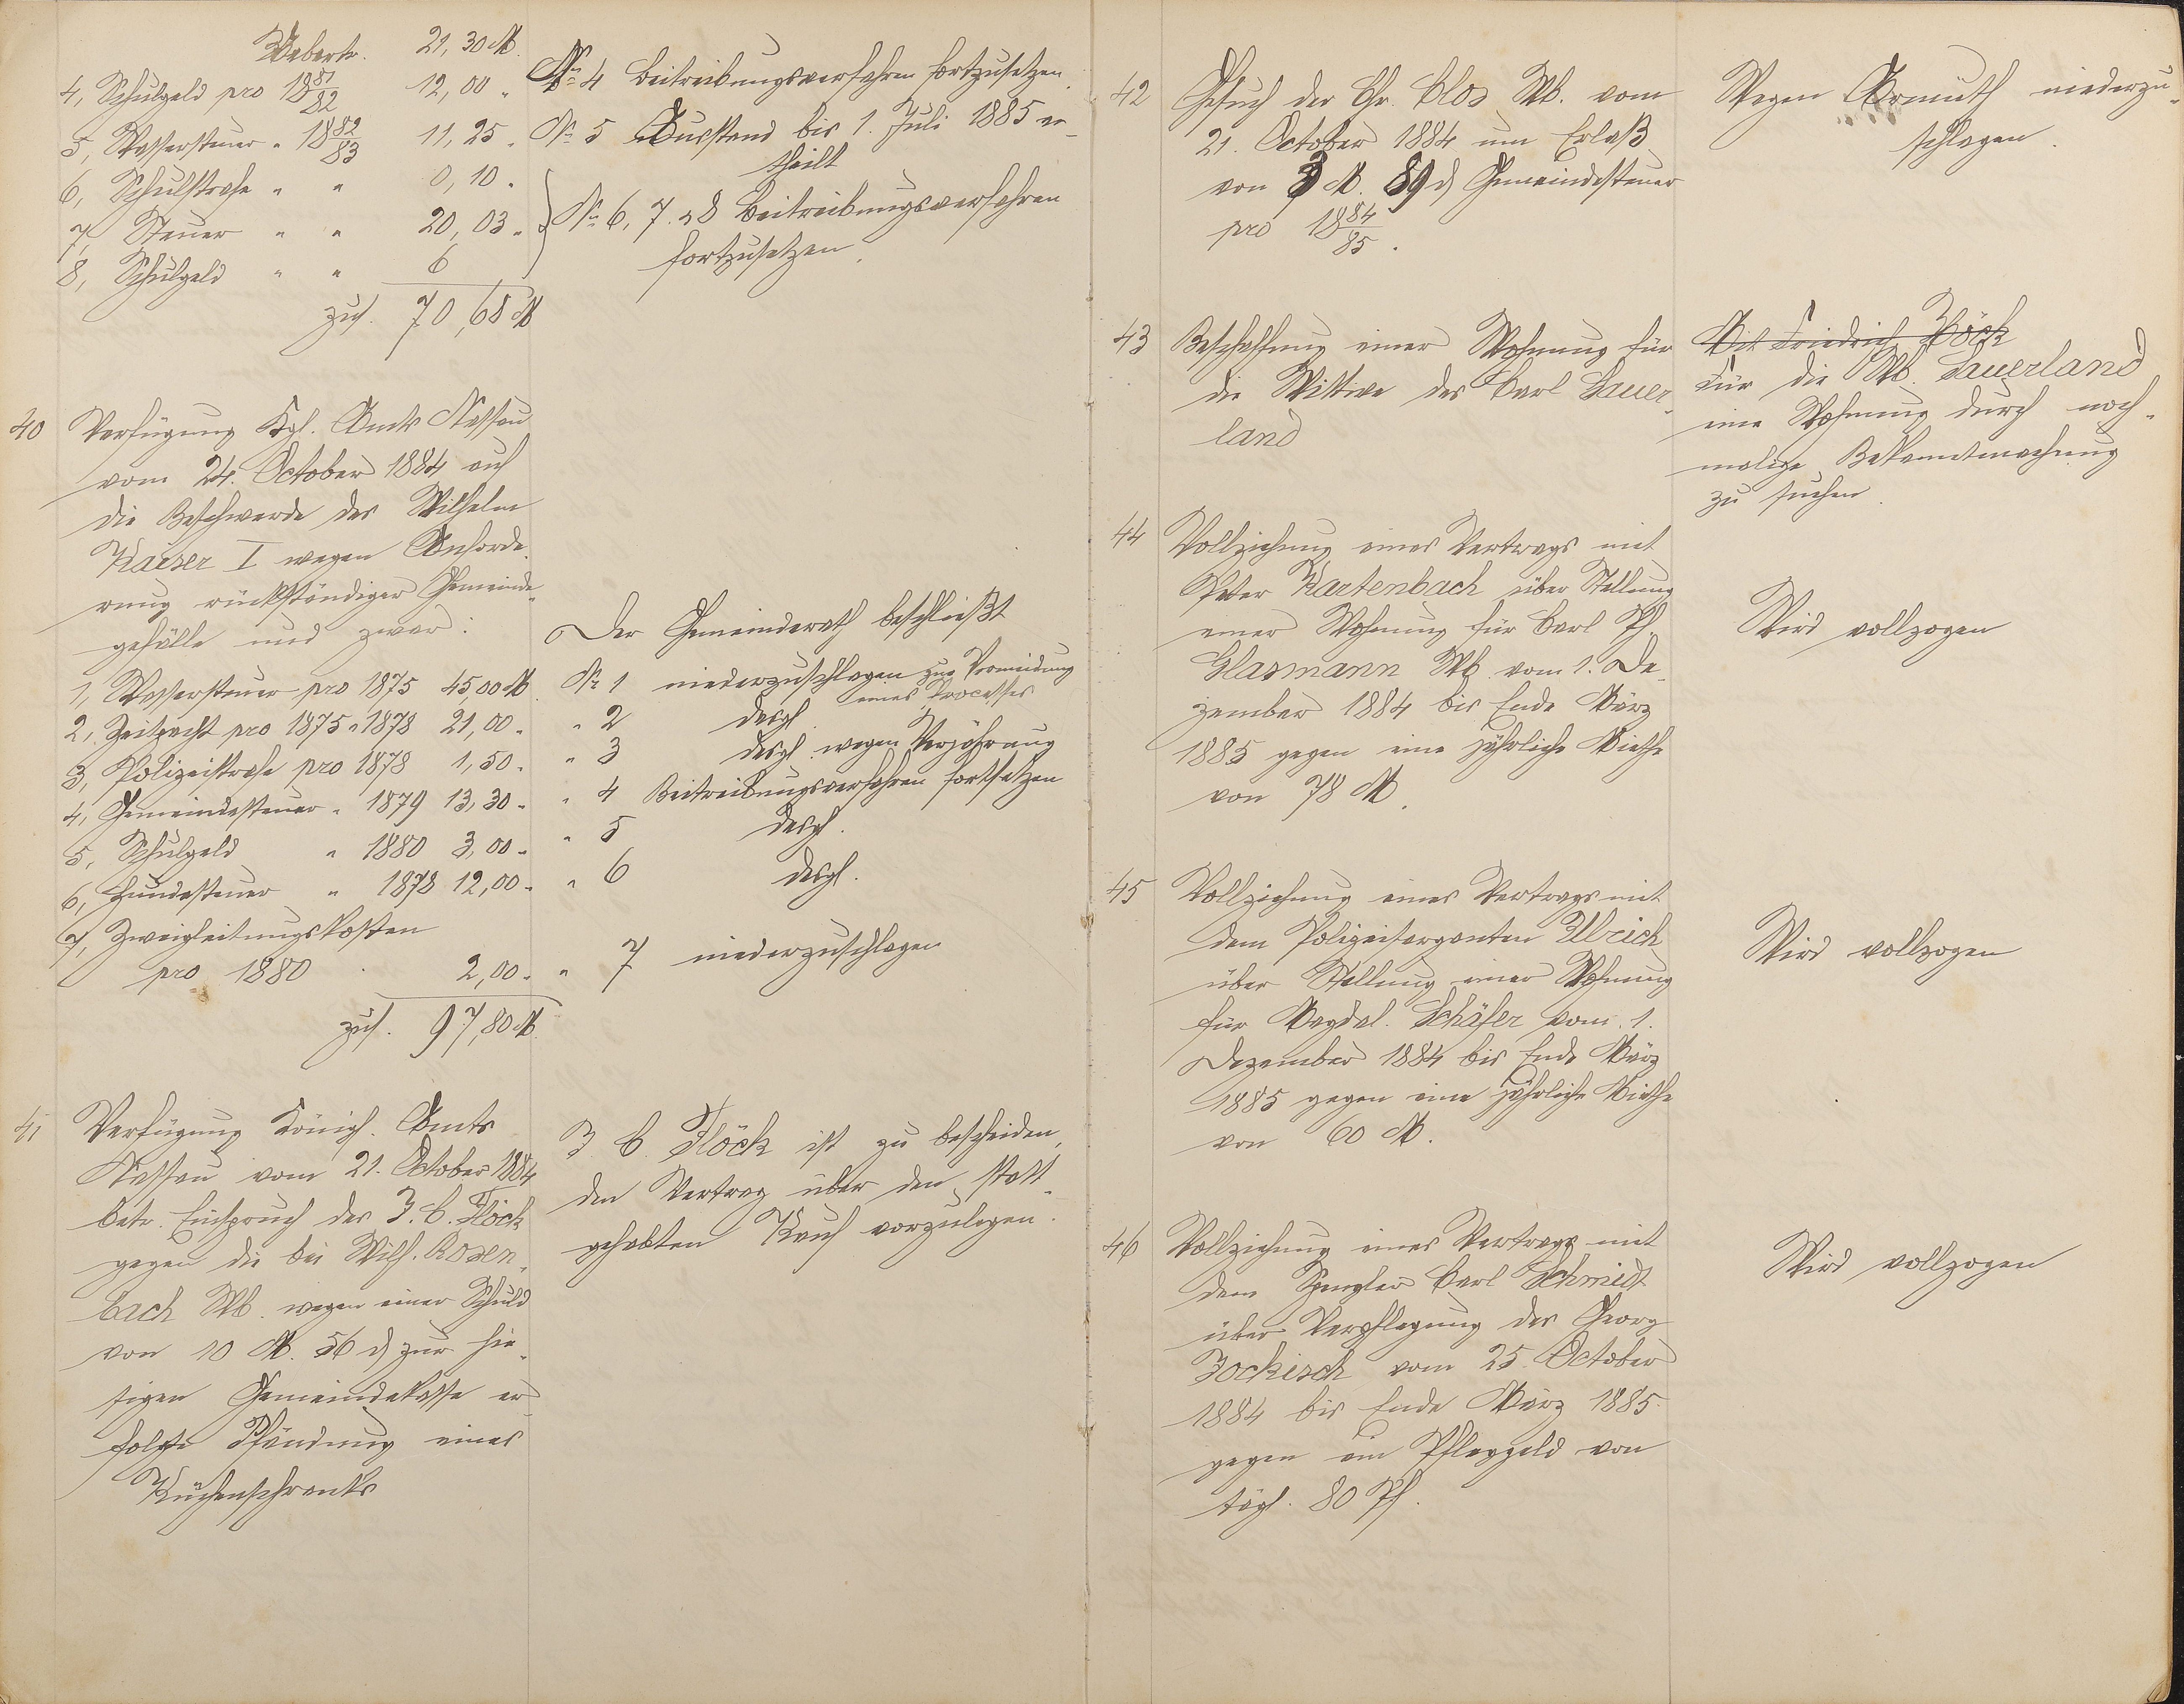 Uebertr. 21,30 M.
4, Schulgeld pro 1881/82 12,00 "
5, Wassersteuer " 1882/83 11,25 "
6, Schulstrafe " " 0,10 "
7, Steuer " " 20,03 "
8, Schulgeld " " 6
zus. 70,68 M
No 4 Beitreibungsverfahren fortzusetzen.
No 5 Ausstand bis 1. Juli 1885 er-
theilt
No 6, 7 u 8 Beitreibungsverfahren
fortzusetzen.
40 Verfügung Kgl. Amts Nassau
vom 24. October 1884 auf
die Beschwerde des Wilhelm
Kaiser I wegen Anforde-
rung rückständiger Gemeinde-
gefälle und zwar:
1, Wassersteuer pro 1875 45,00 M.
2, Zeitpacht pro 1875 u 1878 21,00 "
3, Polizeistrafe pro 1878 1,50 "
4, Gemeindesteuer " 1879 13,30 "
5, Schulgeld " 1880 3,00 "
6, Hundesteuer " 1878 12,00 "
7, Zweigleitungskosten
pro 1880 2,00 "
zus. 97,80 M.
Der Gemeinderath beschließt
No 1 niederzuschlagen zur Vermeidung
eines Processes
" 2 desgl.
" 3 desgl. wegen Verjährung
" 4 Beitreibungsverfahren fortsetzen
" 5 desgl.
" 6 desgl.
" 7 niederzuschlagen
41 Verfügung Königl. Amts
Nassau vom 21. October 1884
betr. Einspruch des J. C. Flöck
gegen die bei Wilh. Rosen-
bach Wb. wegen einer Schuld
von 10 M. 56 d zur hie-
sigen Gemeindekasse er-
folgte Pfändung eines
Küchenschranks
J. C. Flöck ist zu bescheiden,
den Vertrag über den statt-
gehabten Kauf vorzulegen.
42 Gesuch der Chr. Clos Wb. vom
21. October 1884 um Erlaß
von 3 M. 89 d Gemeindesteuer
pro 1884/85.
Wegen Armuth niederzu-
schlagen.
43 Beschaffung einer Wohnung für
die Wittwe des Carl Sauer-
land
Mit Friedrich Böck
Für die Wb. Sauerland
eine Wohnung durch noch-
malige Bekanntmachung
zu suchen.
44 Vollziehung eines Vertrags mit
Peter Kartenbach über Stellung
einer Wohnung für Carl Ph.
Glasmann Wb. vom 1. De-
zember 1884 bis Ende März
1885 gegen eine jährliche Miethe
von 78 M.
Wird vollzogen
45 Vollziehung eines Vertrags mit
dem Polizeiserganten Ulrich
über Stellung einer Wohnung
für Magdal. Schäfer vom 1.
Dezember 1884 bis Ende März
1885 gegen eine jährliche Miethe
von 60 M.
Wird vollzogen
46 Vollziehung eines Vertrags mit
dem Spengler Carl Schmidt
über Verpflegung des Georg
Jockisch vom 25. October
1884 bis Ende März 1885
gegen ein Pfleggeld von
tägl. 80 Pf.
Wird vollzogen